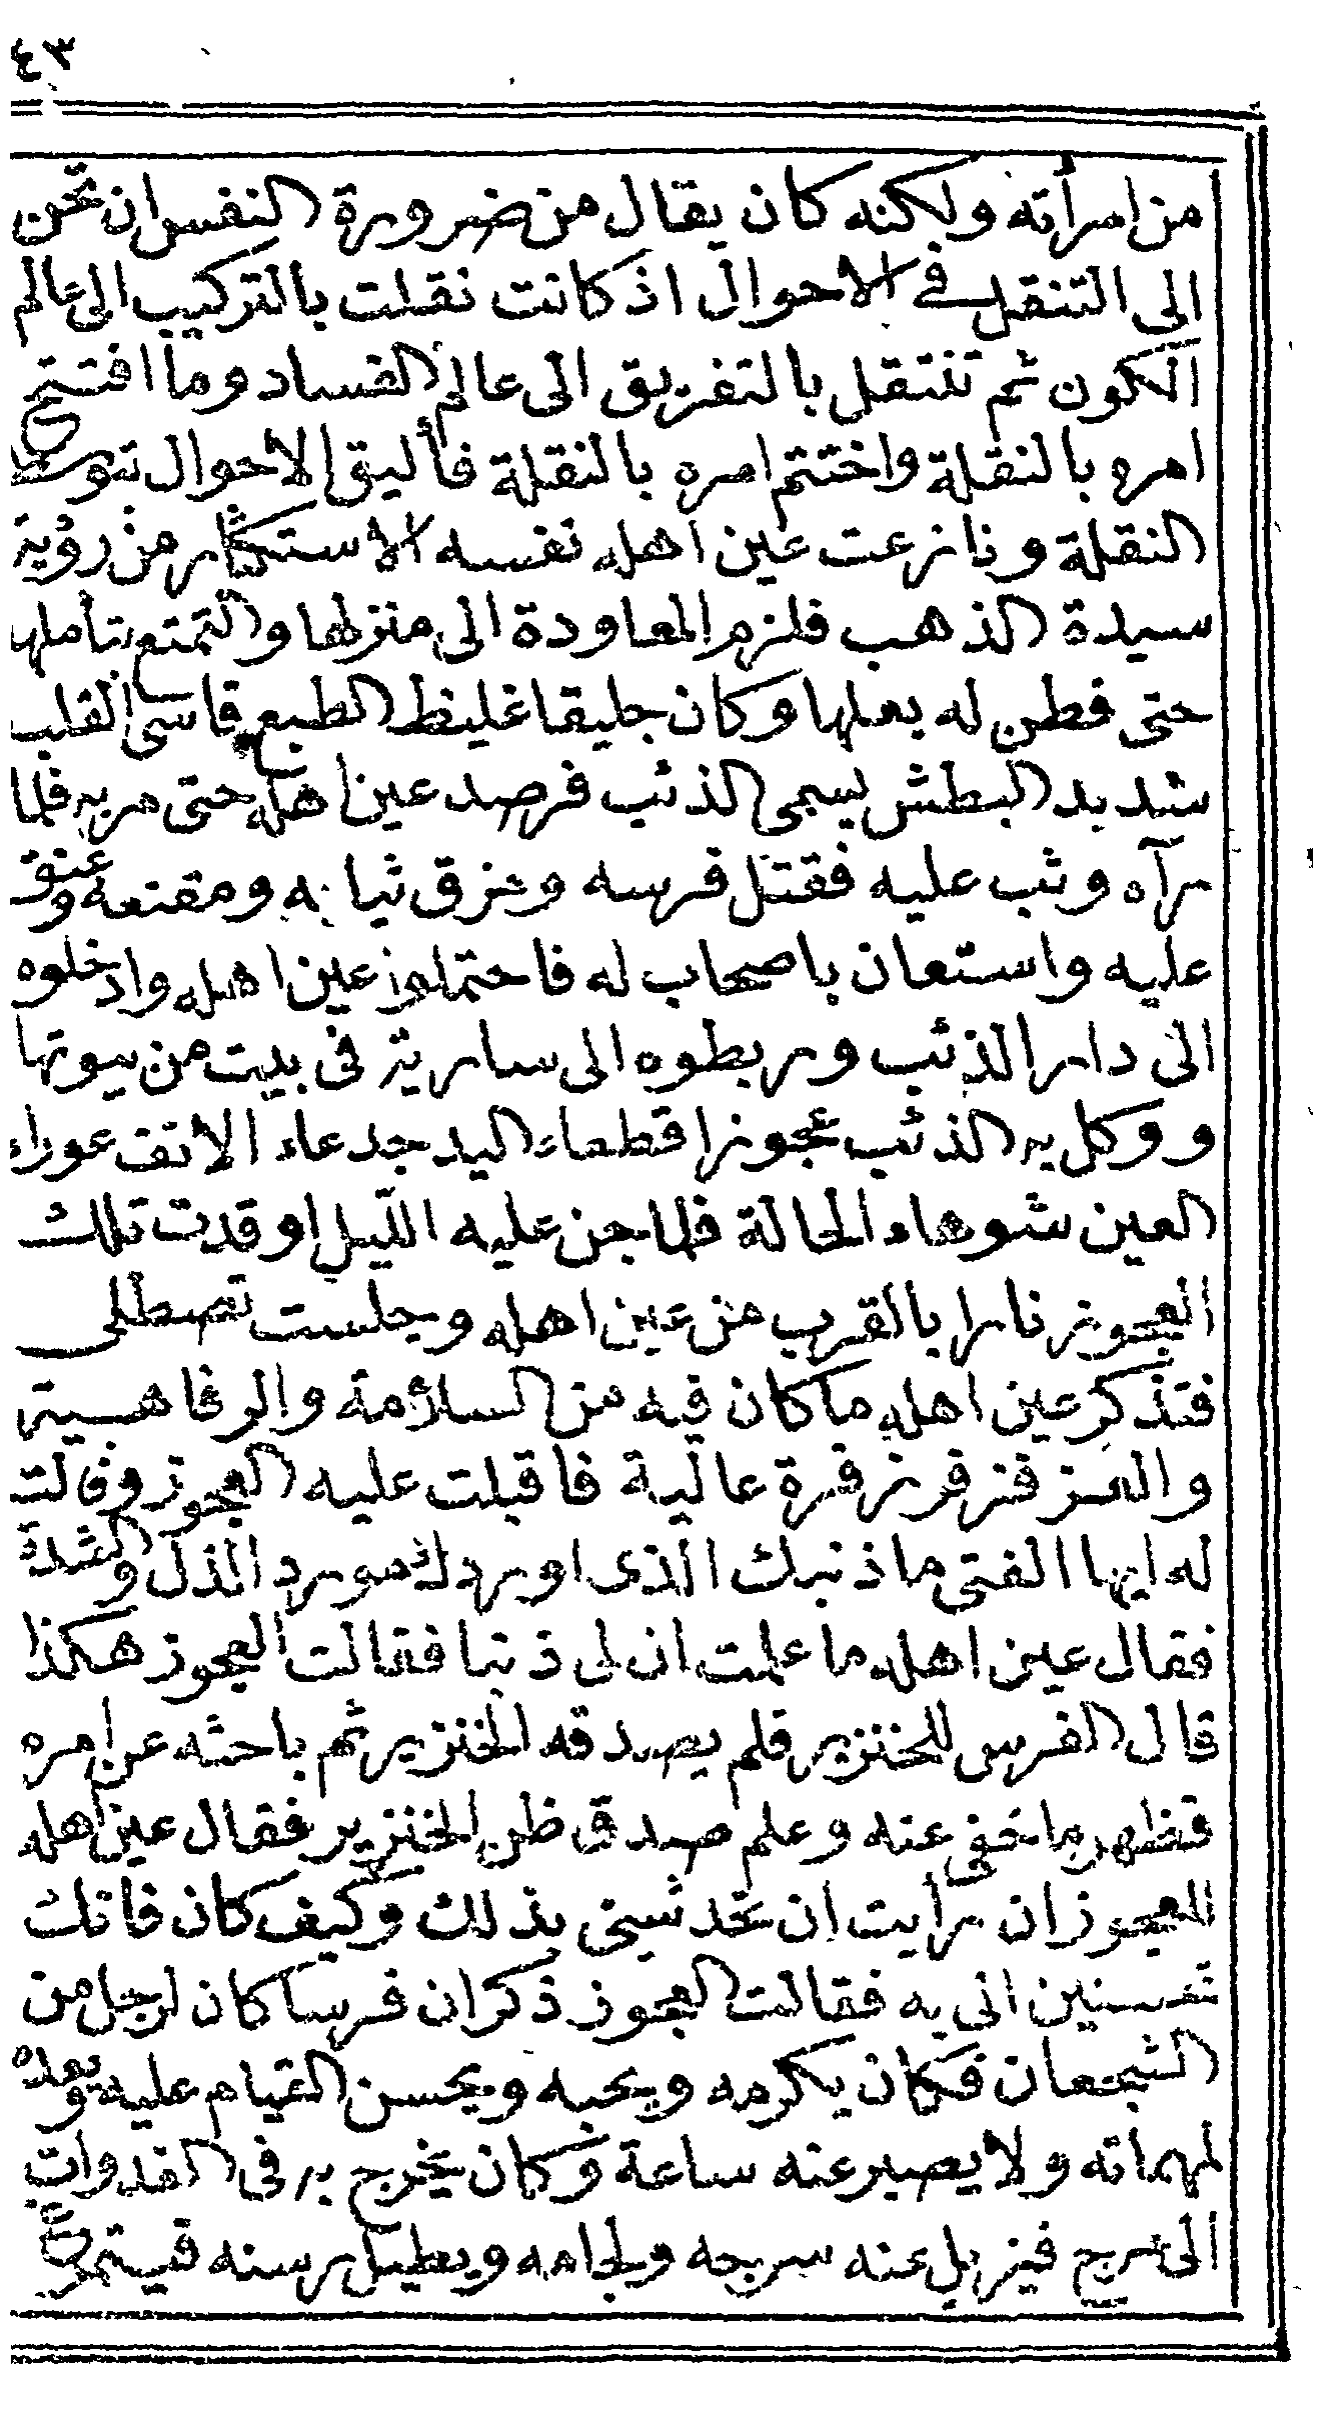 ٤٣
من امرأته ولكنه كان يقال من ضرورة النفس ان تحن
الى التنقل في الاحوال اذ كانت نقلت بالتركيب الى عالم
الكون ثم تنتقل بالتفريق الى عالم الفساد وما افتتح
امره بالنقلة واختتم امره بالنقلة فأليق الاحوال توسط
النقلة ونازعت عين اهله نفسه الاستكثار من رؤية
سيدة الذهب فلزم المعاودة الى منزلها والتمتع بتأملها
حتى فطن له بعلها وكان جليقا غليظ الطبع قاسى القلب
شديد البطش يسمى الذئب فرصد عين اهله حتى مر به فلما
رآه وثب عليه فقتل فرسه ومزق ثيابه ومقنعه وعنق
عليه واستعان باصحاب له فاحتملوا عين اهله وادخلوه
الى دار الذئب وربطوه الى سارية فى بيت من بيوتها
ووكل به الذئب عجوزا قطعاء اليد جدعاء الانف عوراء
العين شوهاء الحالة فلما جن عليه الليل اوقدت تلك
العجوز نارا بالقرب من عين اهله وجلست تصطلى
فتذكر عين اهله ما كان فيه من السلامة والرفاهية
والعز فزفر زفرة عالية فاقبلت عليه العجوز وقالت
له ايها الفتى ما ذنبك الذى اوردك مورد الذل والشدة
فقال عين اهله ما علمت ان لى ذنبا فقالت العجوز هكذا
قال الفرس للخنزير فلم يصدقه الخنزير ثم باحثه عن امره
فظهر ما خفى عنه وعلم صدق ظن الخنزير فقال عين اهله
للعجوز ان رأيت ان تحدثينى بذلك وكيف كان فانك
تحسنين الى به فقالت العجوز ذكر ان فرسا كان لرجل من
الشجعان فكان يكرمه ويحبه ويحسن القيام عليه ويعده
لمهماته ولا يصبر عنه ساعة وكان يخرج به فى الغدوات
الى مرج فيزيل عنه سرجه ولجامه ويطيل رسنه فيتمرغ